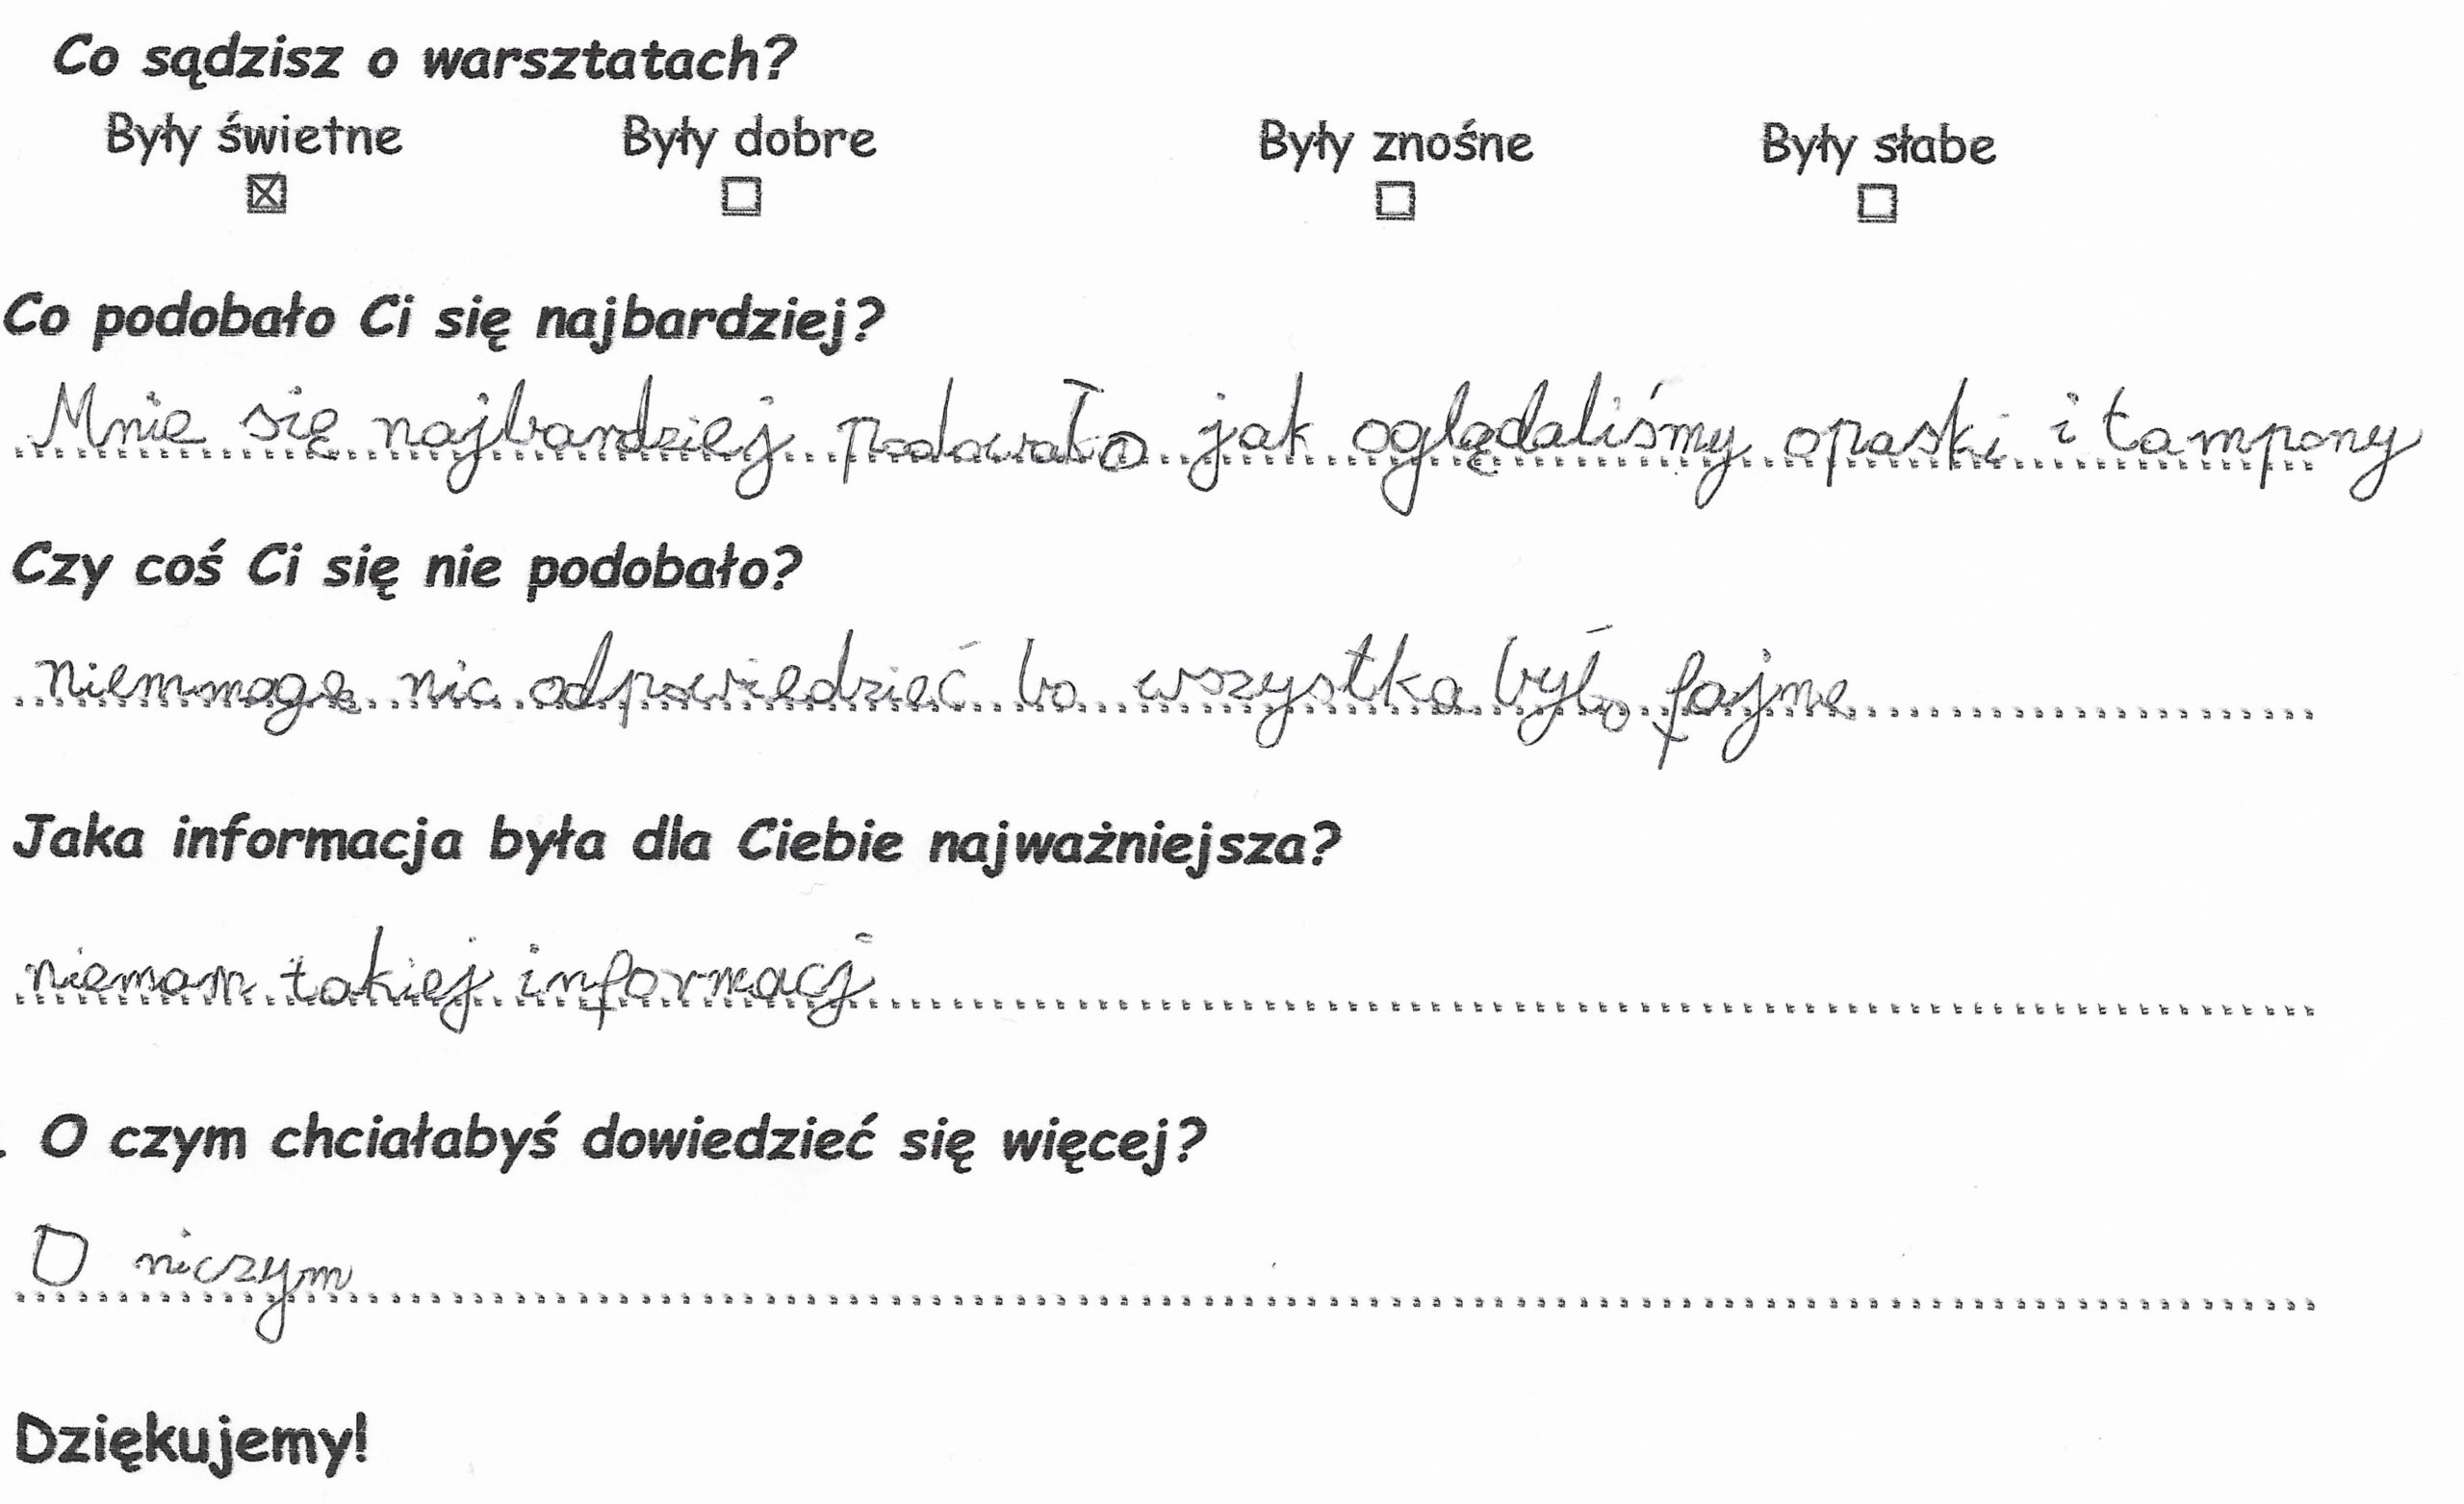 Co sądzisz o warsztatach?
Były świetne Były dobre Były znośne Były słabe
☒ ☐ ☐ ☐
Co podobało Ci się najbardziej?
Mnie się najbardziej podowało jak oglądaliśmy opaski i tampony
Czy coś Ci się nie podobało?
niemmogę nic odpowiedzieć bo wszystko było fajne
Jaka informacja była dla Ciebie najważniejsza?
niemam takiej informacj
. O czym chciałabyś dowiedzieć się więcej?
O niczym
Dziękujemy!